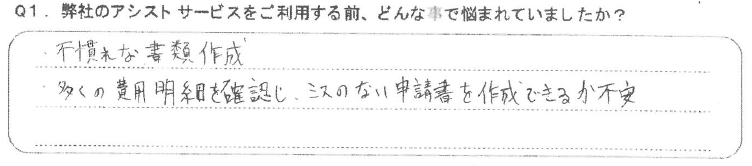 Q1. 弊社のアシストサービスをご利用する前、どんな事で悩まれていましたか？
・不慣れな書類作成
・多くの費用明細を確認し、ミスのない申請書を作成できるか不安